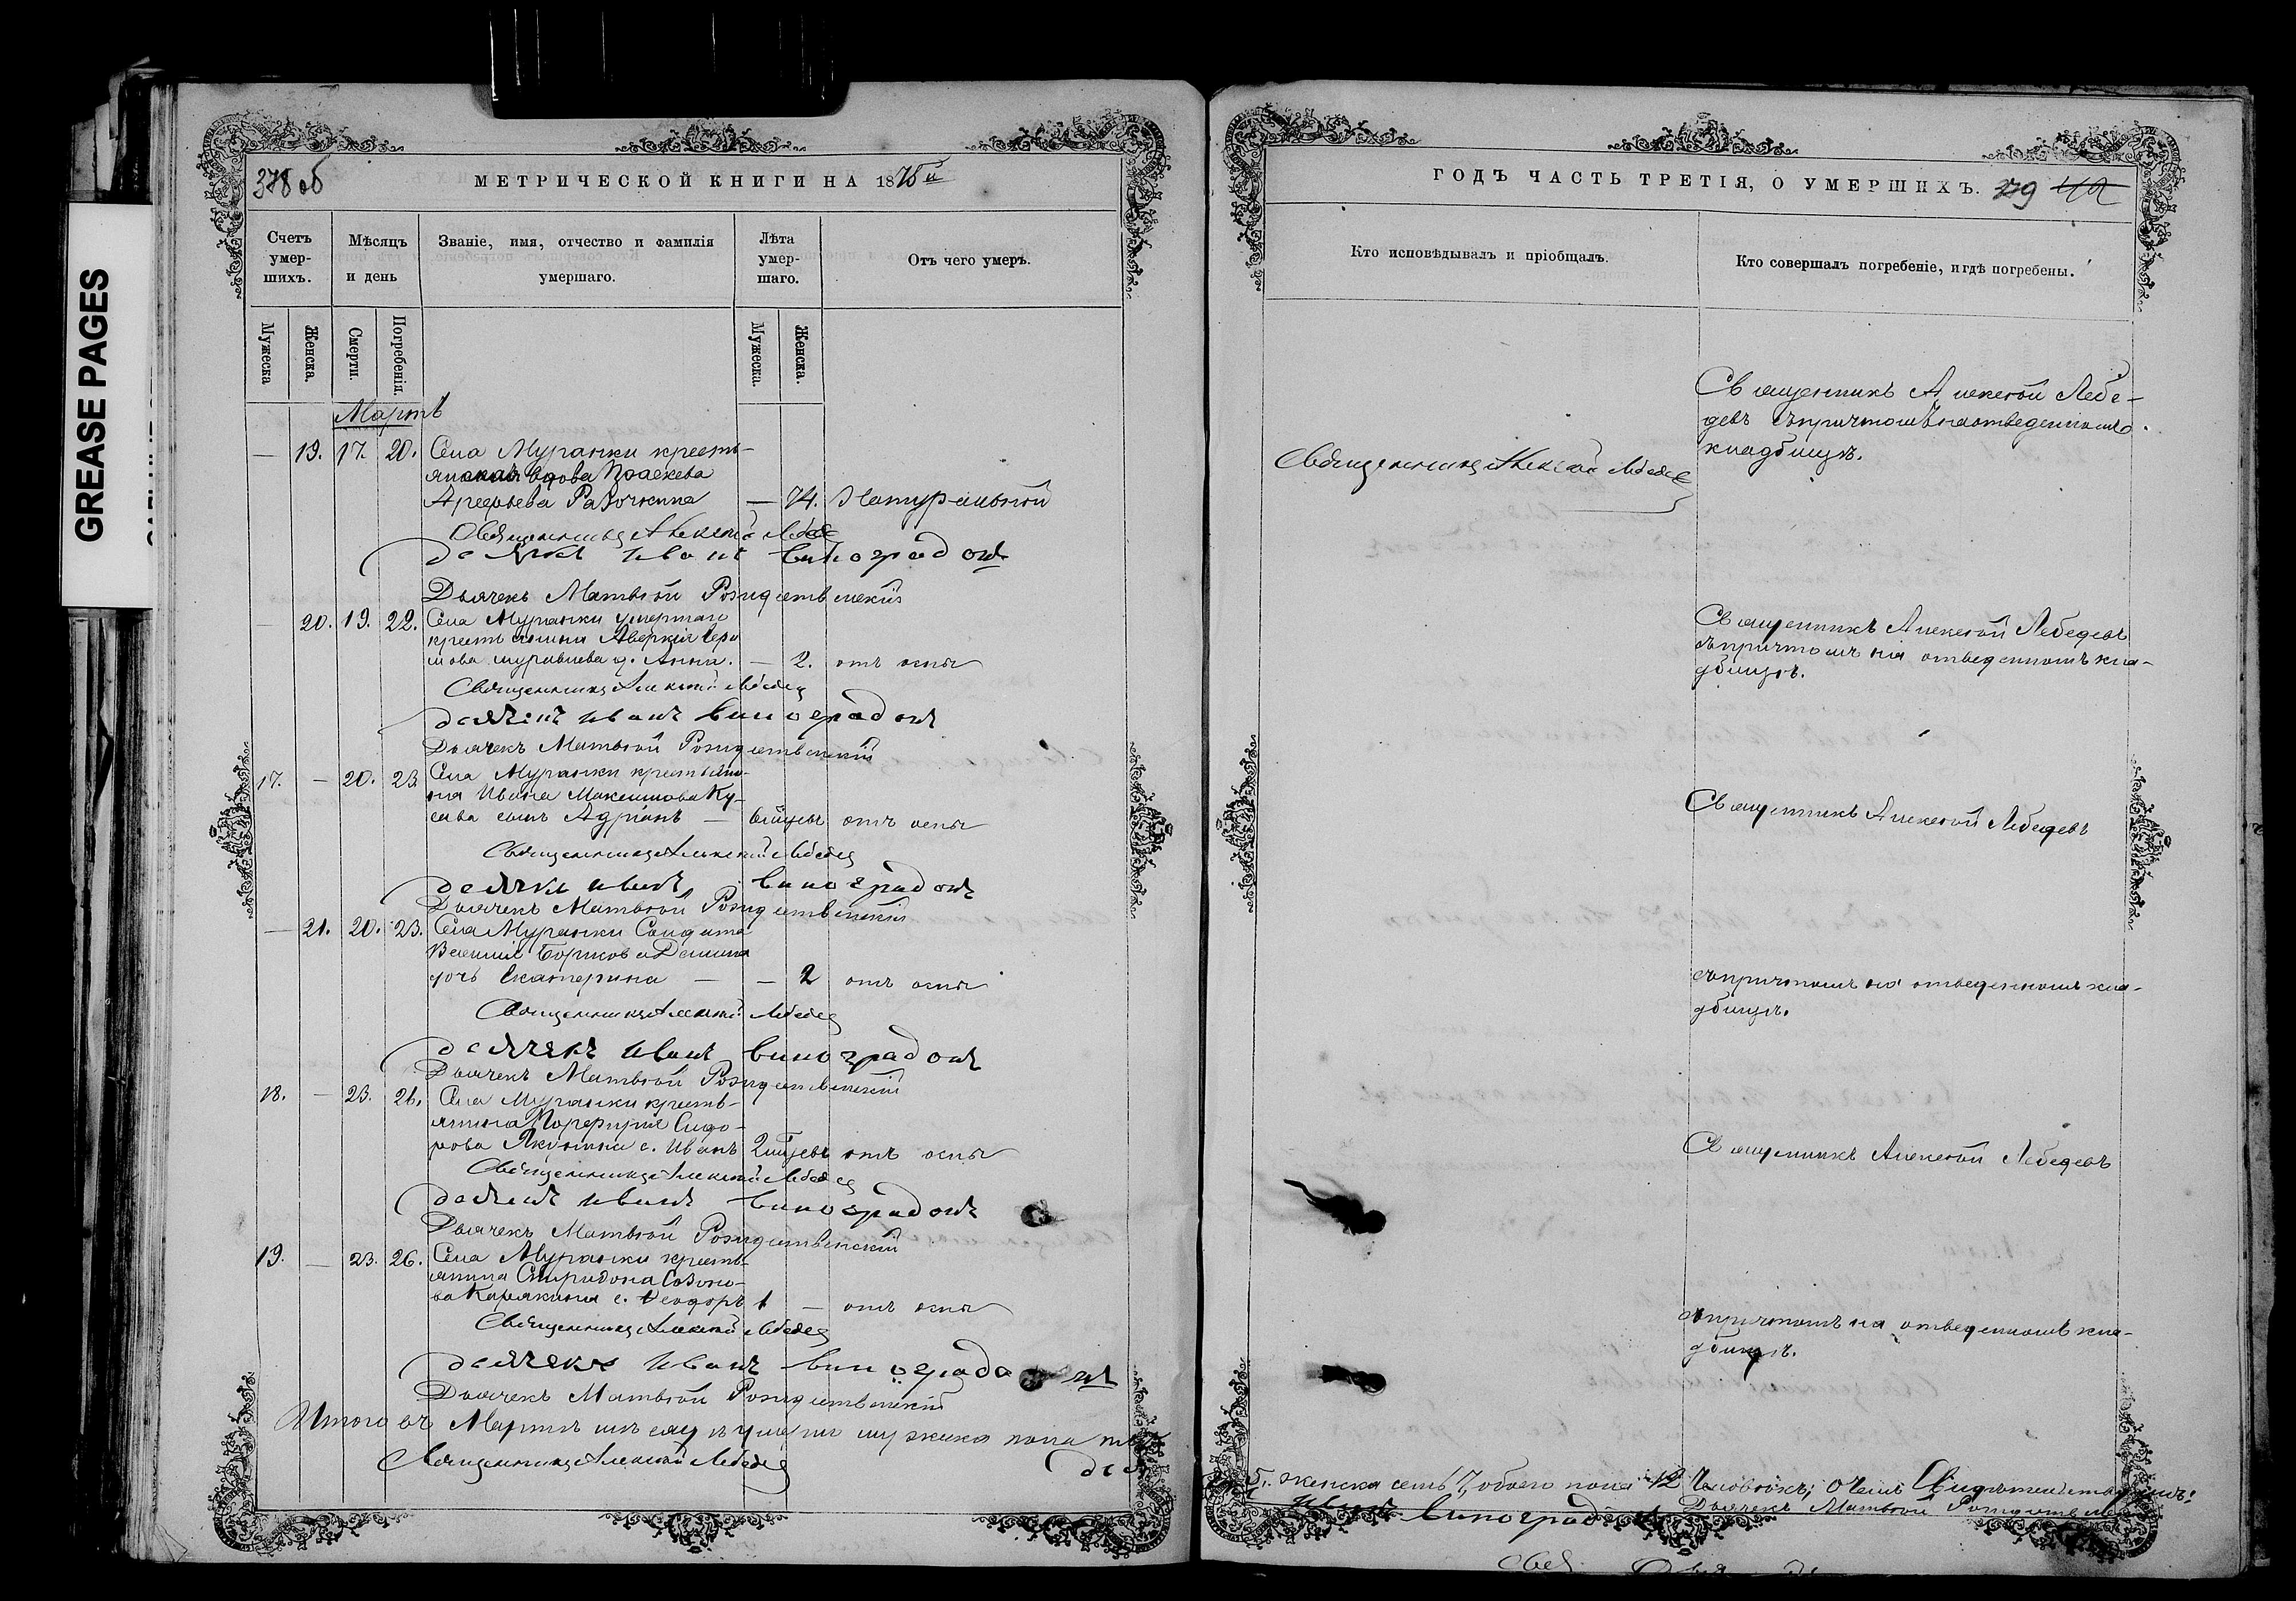 GREASE PAGES
378 об
МЕТРИЧЕСКОЙ КНИГИ НА 1878й
Счетъ умер-шихъ.
Мѣсяцъ и день
Званіе, имя, отчество и фамилія умершаго.
Лѣта умер-шаго.
Отъ чего умеръ.
Мужеска
Женска.
Смерти.
Погребенія.
Мужеска.
Женска.
Мартъ
— 19. 17. 20. Села Муранки кресть-
янская вдова Праскева
Арефьева — 74. Натуральной
Священникъ Алексѣй Лебедев
Иванъ Виноградовъ
Дьячекъ Матвѣй Рождественскій
— 20. 19. 22. Села Муранки умершаго
крестьянина Аверкія
д. Анна. — 2. отъ оспы
Священникъ Алексѣй Лебедев
Иванъ Виноградовъ
Дьячекъ Матвѣй Рождественскій
17. — 20. 23. Села Муранки крестьяни-
на Ивана Максимова Ку-
сынъ Адріанъ — отъ оспы
Священникъ Алексѣй Лебедев
Иванъ Виноградовъ
Дьячекъ Матвѣй Рождественскій
— 21. 20. 23. Села Муранки Солдата
дочь Екатерина — — 2 отъ оспы
Священникъ Алексѣй Лебедев
Иванъ Виноградовъ
Дьячекъ Матвѣй Рождественскій
18. — 23. 26. Села Муранки кресть-
янина Порфирія Сидо-
рова с. Иванъ 2 мѣсцевъ отъ оспы
Священникъ Алексѣй Лебедев
Иванъ Виноградовъ
Дьячекъ Матвѣй Рождественскій
19. — 23. 26. Села Муранки кресть-
янина Спиридона Созоно-
ва Карякина с. Ѳеодоръ 1 — отъ оспы
Священникъ Алексѣй Лебедев
Иванъ Виноградовъ
Дьячекъ Матвѣй Рождественскій
Итого въ Мартѣ мѣсяцѣ умерло мужска пола
Священникъ Алексѣй Лебедев
ГОДЪ ЧАСТЬ ТРЕТІЯ, О УМЕРШИХЪ. 379
Кто исповѣдывалъ и пріобщалъ.
Кто совершалъ погребеніе, и гдѣ погребены.
Священникъ Алексѣй Лебедев
Священникъ Алексѣй Лебе-
девъ съ причтомъ на отведенномъ
кладбищѣ.
Священникъ Алексѣй Лебедевъ
съ причтомъ на отведенномъ кла-
дбищѣ.
Священникъ Алексѣй Лебедевъ
съ причтомъ на отведенномъ кла-
дбищѣ.
Священникъ Алексѣй Лебедевъ
съ причтомъ на отведенномъ кла-
дбищѣ.
5. женска семь 7, обоего пола 12 человѣкъ; о чемъ
Дьячекъ Матвѣй
Иванъ Виноградовъ